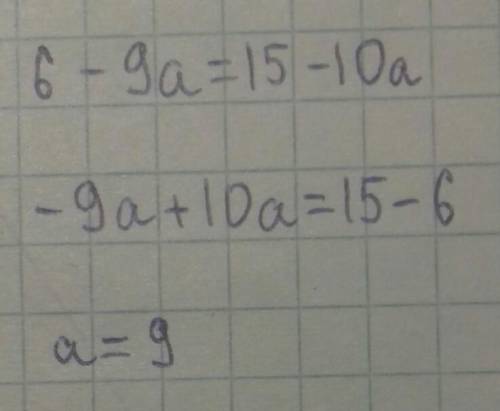 6 - 9a = 15 - 10a
-9a + 10a = 15 - 6
a = 9